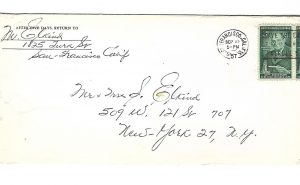 AFTER FIVE DAYS RETURN TO
M. Elkind
1825 Turk St
San-Francisco Calif
SEP 
5-PM
1957
Mr + Mrs S. Elkind
509 W. 121 St 707
New-York 27, N.Y.